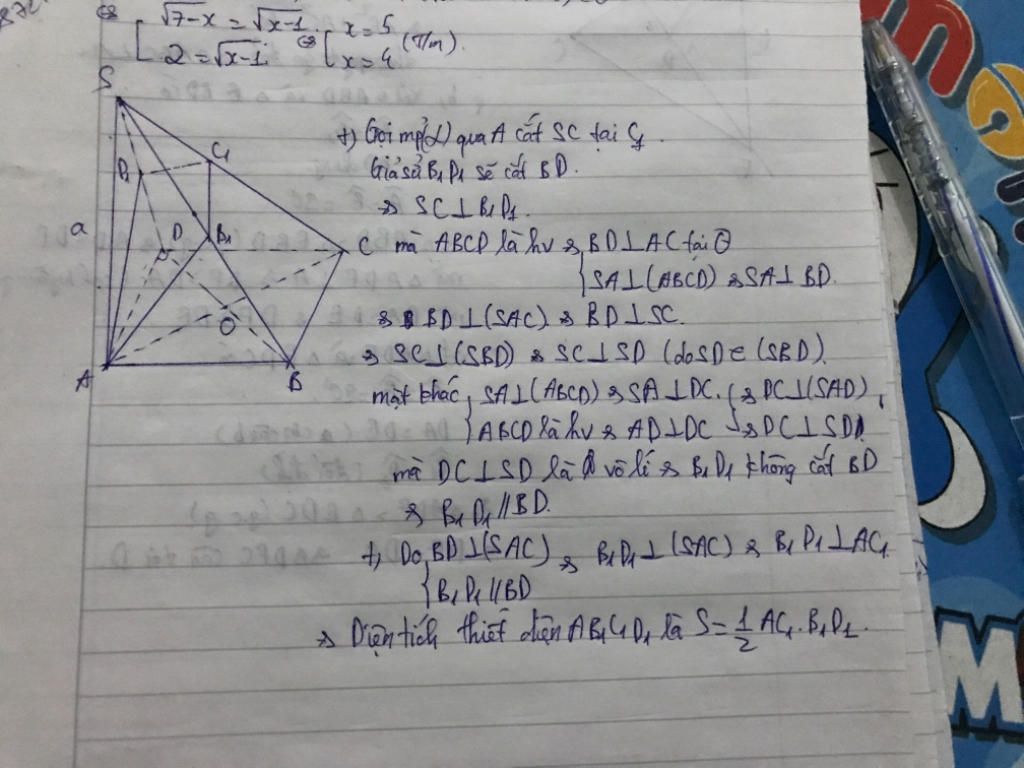 872
⇔ [ √7-x = √x-1 ⇔ [ x = 5 (T/m).
2 = √x-1 x = 4
S
+) Gọi mp(α) qua A cắt SC tại C₁.
C₁
D₁
Giả sử B₁D₁ sẽ cắt BD.
⇒ SC⊥B₁D₁.
a
D
B₁
C
mà ABCD là hv ⇒ BD⊥AC tại O
{ SA⊥(ABCD) ⇒ SA⊥BD.
O
⇒ BD⊥(SAC) ⇒ BD⊥SC.
⇒ SC⊥(SBD) ⇒ SC⊥SD (do SD∈(SBD).
A
B
mặt khác { SA⊥(ABCD) ⇒ SA⊥DC. } ⇒ DC⊥(SAD)
ABCD là hv ⇒ AD⊥DC ⇒ DC⊥SD
mà DC⊥SD là vô lí ⇒ B₁D₁ không cắt BD
⇒ B₁D₁//BD.
+) Do { BD⊥(SAC) ⇒ B₁D₁⊥(SAC) ⇒ B₁D₁⊥AC₁
B₁D₁//BD
⇒ Diện tích thiết diện AB₁C₁D₁ là S = 1/2 AC₁.B₁D₁.